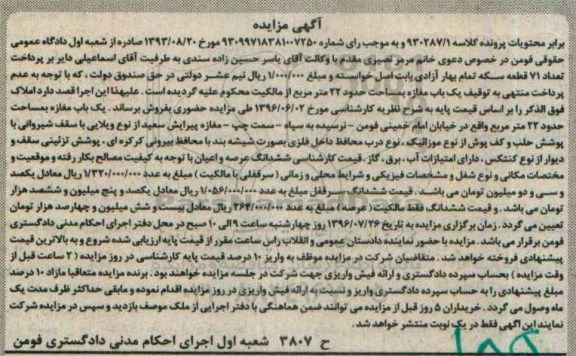 آگهی مزایده
برابر محتویات پرونده کلاسه ۹۳۰۲۸۷/۱ و به موجب رای شماره ۹۳۰۹۹۷۱۸۳۸۱۰۰۷۲۵۰ مورخ ۱۳۹۳/۰۸/۲۰ صادره از شعبه اول دادگاه عمومی
حقوقی فومن در خصوص دعوی خانم مرمر نصیری مقدم با وکالت آقای یاسر حسین زاده سندی به طرفیت آقای اسماعیلی دایر بر پرداخت
تعداد ۷۱ قطعه سکه تمام بهار آزادی بابت اصل خواسته و مبلغ ۱/۰۰۰/۰۰۰ ریال نیم عشر دولتی در حق صندوق دولت ، که با توجه به عدم
پرداخت منتهی به توقیف یک باب مغازه بمساحت حدود ۲۲ متر مربع از مالکیت محکوم علیه گردیده است . علیهذا این اجرا قصد دارد املاک
فوق الذکر را بر اساس قیمت پایه به شرح نظریه کارشناسی مورخ ۱۳۹۶/۰۶/۰۲ طی مزایده حضوری بفروش برساند . یک باب مغازه بمساحت
حدود ۲۲ متر مربع واقع در خیابان امام خمینی فومن - نرسیده به سپاه - سمت چپ - مغازه پیرایش سعید از نوع ویلایی با سقف شیروانی با
پوشش حلب و کف پوش از نوع موزائیک ، نوع درب محافظ داخل فلزی بصورت شیشه بند با محافظ بیرونی کرکره ای ، پوشش تزئینی سقف و
دیوار از نوع کنتکس . دارای امتیازات آب ، برق ، گاز . قیمت کارشناسی ششدانگ عرصه و اعیان با توجه به کیفیت مصالح بکار رفته و موقعیت و
مختصات مکانی و نوع شغل و مشخصات فیزیکی و شرایط محلی و زمانی ( سرقفلی با مالکیت ) مبلغ به عدد ۱/۳۲۰/۰۰۰/۰۰۰ ریال معادل یکصد
و سی و دو میلیون تومان می باشد . قیمت ششدانگ سرقفلی مبلغ به عدد ۱/۰۵۶/۰۰۰/۰۰۰ ریال معادل یکصد و پنج میلیون و ششصد هزار
تومان می باشد . و قیمت ششدانگ فقط مالکیت ( عرصه ) مبلغ به عدد ۲۶۴/۰۰۰/۰۰۰ ریال معادل بیست و شش میلیون و چهارصد هزار تومان
تعیین می گردد . زمان برگزاری مزایده به تاریخ ۱۳۹۶/۰۷/۲۶ روز چهارشنبه ساعت ۹ الی ۱۰ صبح در محل دفتر اجرای احکام مدنی دادگستری
فومن برقرار می باشد . مزایده با حضور نماینده دادستان عمومی و انقلاب راس ساعت مقرر از قیمت پایه ارزیابی شده شروع و به بالاترین قیمت
پیشنهادی فروخته خواهد شد . متقاضیان شرکت در مزایده موظف به واریز ۱۰ درصد قیمت پایه کارشناسی در روز مزایده ( ۲ ساعت قبل از
وقت مزایده ) بحساب سپرده دادگستری و ارائه فیش واریزی جهت شرکت در جلسه مزایده خواهند بود . برنده مزایده متعاقبا مازاد ۱۰ درصد
مبلغ پیشنهادی را به حساب سپرده دادگستری واریز و نسبت به ارائه فیش واریزی در روز مزایده اقدام نموده و مابقی حداکثر ظرف مدت یک
ماه وصول می گردد . خریداران ۵ روز قبل از مزایده می توانند ضمن هماهنگی با دفتر اجرایی از ملک موصف بازدید و سپس در مزایده شرکت
نمایند این آگهی فقط در یک نوبت منتشر خواهد شد .
ح ۳۸۰۷ شعبه اول اجرای احکام مدنی دادگستری فومن